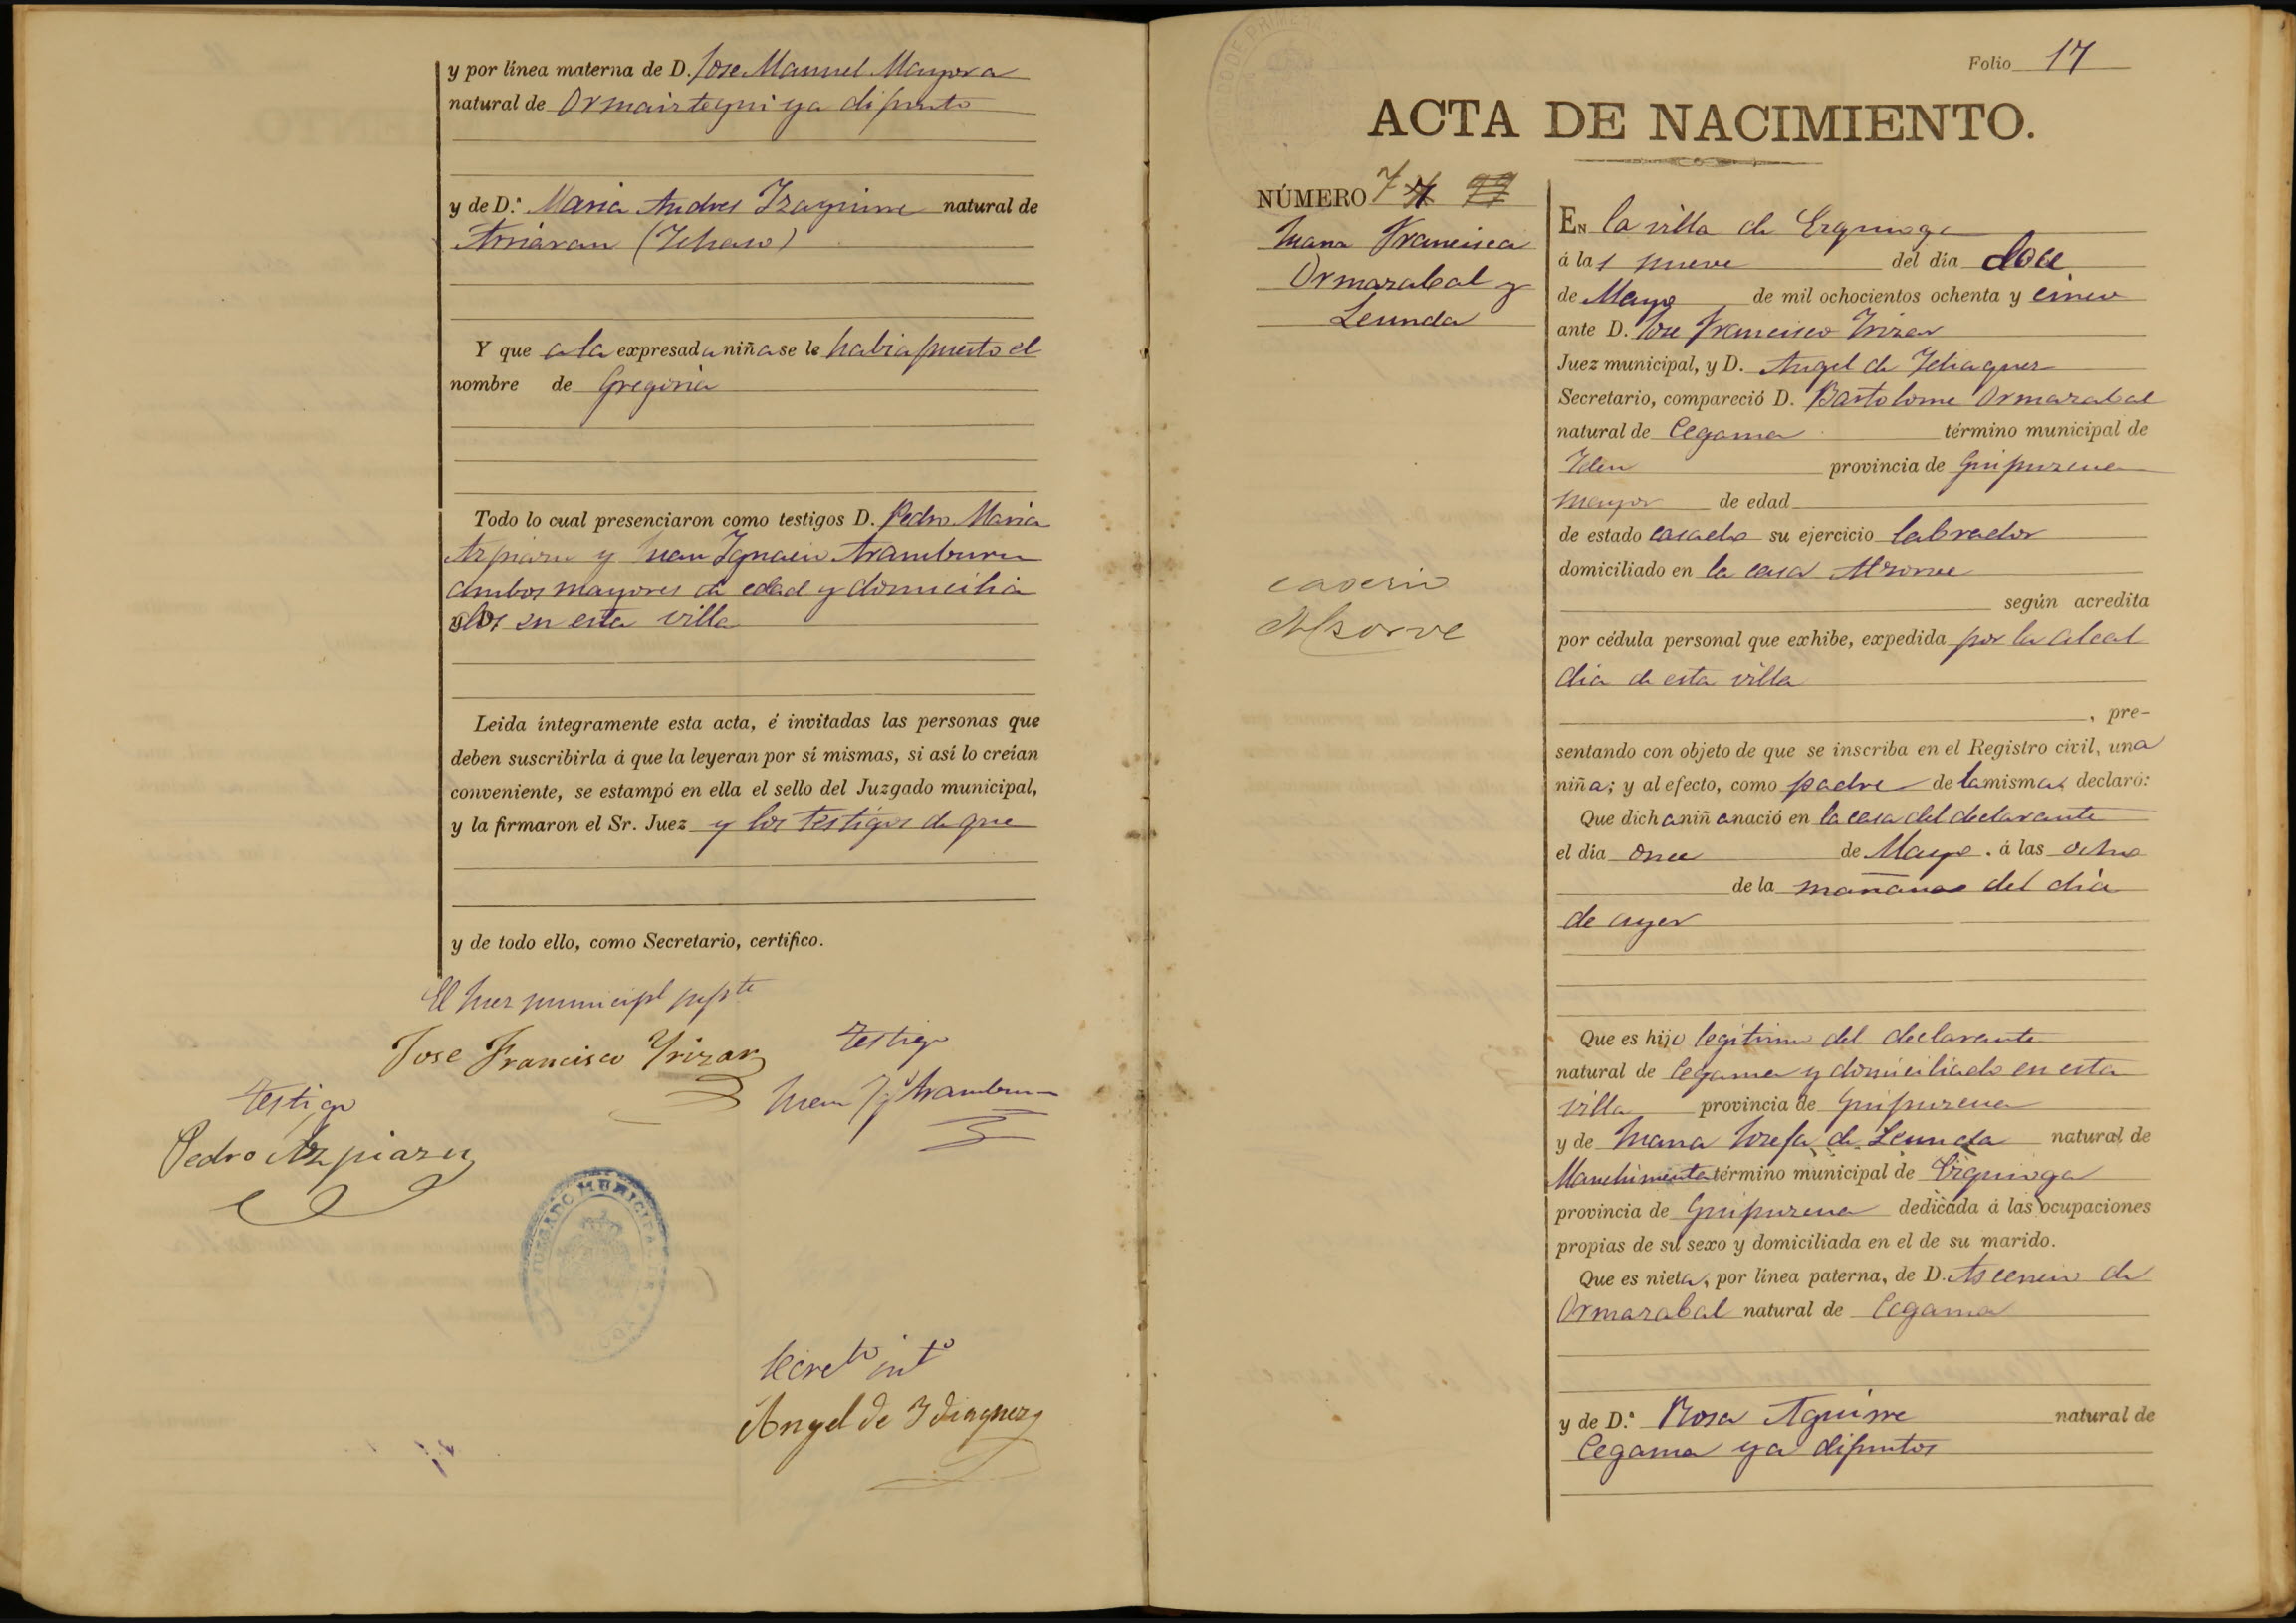 y por línea materna de D. Jose Manuel Mayora
natural de Ormaiztegui ya difunto
y de D.ª Maria Andres Izaguirre natural de
Arriaran (Ichaso)
Y que a la expresada niña se le habia puesto el
nombre de Gregoria
Todo lo cual presenciaron como testigos D. Pedro Maria
Azpiazu y Juan Ignacio Aramburu
ambos mayores de edad y domicilia
dos en esta villa
Leida íntegramente esta acta, é invitadas las personas que
deben suscribirla á que la leyeran por sí mismas, si así lo creían
conveniente, se estampó en ella el sello del Juzgado municipal,
y la firmaron el Sr. Juez y los testigos de que
y de todo ello, como Secretario, certifico.
El Juez municipl supte
Jose Francisco Yrizar
testigo
Juan Ygº Aramburu
testigo
Pedro Azpiazu
JUZGADO MUNICIPAL
Secretº intº
Angel de Idiaquez
Folio 17
ACTA DE NACIMIENTO.
NÚMERO 7
Juana Francisca
Ormazabal y
Leunda
caserio
Alzorve
En la villa de Ezquioga
á las nueve del día doce
de Mayo de mil ochocientos ochenta y cinco
ante D. Jose Francisco Irizar
Juez municipal, y D. Angel de Idiaquez
Secretario, compareció D. Bartolome Ormazabal
natural de Cegama término municipal de
Idem provincia de Guipuzcoa
mayor de edad
de estado casado su ejercicio labrador
domiciliado en la casa Alzorve
según acredita
por cédula personal que exhibe, expedida por la alcal
dia de esta villa
, pre-
sentando con objeto de que se inscriba en el Registro civil, una
niña; y al efecto, como padre de la misma, declaró:
Que dicha niña nació en la casa del declarante
el día once de Mayo. á las ocho
de la mañana del dia
de ayer
Que es hijo legitimo del declarante
natural de Cegama y domiciliado en esta
villa provincia de Guipuzcoa
y de Juana Josefa de Leunda natural de
Manchimenta término municipal de Ezquioga
provincia de Guipuzcoa dedicada á las ocupaciones
propias de su sexo y domiciliada en el de su marido.
Que es nieta, por línea paterna, de D. Ascencio de
Ormazabal natural de Cegama
y de D.ª Rosa Aguirre natural de
Cegama ya difuntos